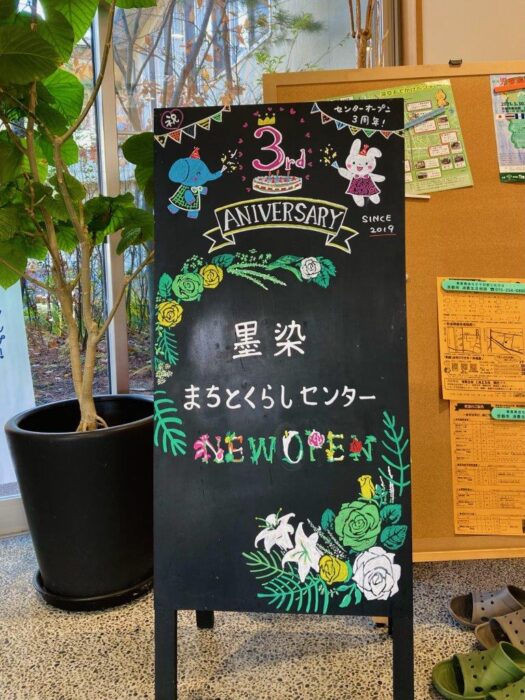 祝
3rd
センターオープン
3周年!
ANIVERSARY
SINCE
2019
墨染
まちとくらしセンター
NEW OPEN